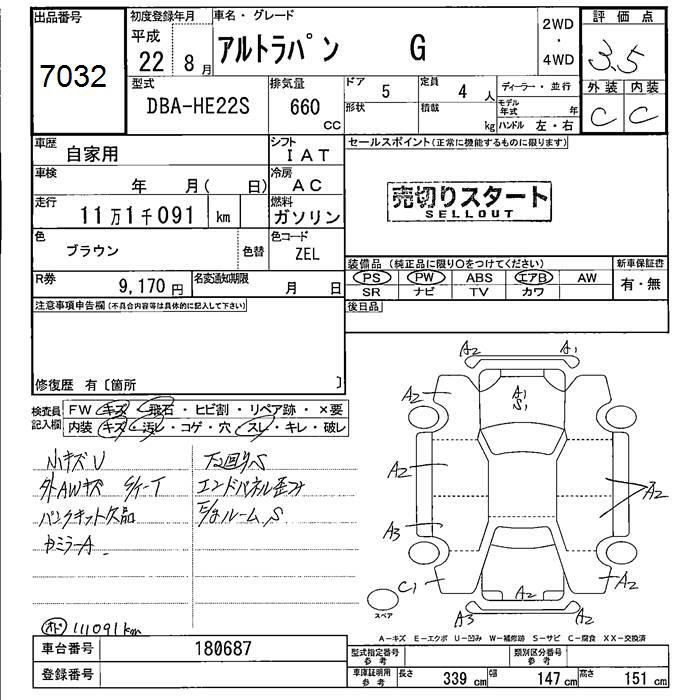 出品番号
7032
初度登録年月
平成
22 8月
車名・グレード
アルトラパン G
2WD
・
4WD
評価点
3.5
外装 内装
C C
型式
DBA-HE22S
排気量
660 CC
ドア 5
形状
定員 4人
積載 kg
ディーラー・並行
モデル年式 年
ハンドル 左・右
車歴 自家用
シフト IAT
車検 年 月( 日)
冷房 AC
走行 11万1千091 km
燃料 ガソリン
色 ブラウン 色替
色コード ZEL
R券 9,170円
名変通知期限 月 日
セールスポイント(正常に機能するものに限ります)
売切りスタート
SELLOUT
装備品(純正品に限り○をつけてください)
PS PW ABS エアB AW
SR ナビ TV カワ
新車保証書
有・無
後日品
注意事項申告欄(不具合内容等は具体的に記入して下さい)
修復歴 有〔箇所 〕
検査員記入欄
FW キズ・飛石・ヒビ割・リペア跡・×要
内装 キズ・汚レ・コゲ・穴・スレ・キレ・破レ
小キズU
下回りS
外AWキズ
エンドパネル歪み
パンクキット欠品
ルームS
ミラーA
111091km
A2 A1
A2
A1
S1
A2
A2
A3
C1
A2
A2
A3 A2
スペア
A-キズ E-エクボ U-凹み W-補修跡 S-サビ C-腐食 XX-交換済
車台番号 180687
登録番号
型式指定番号 参考
類別区分番号 参考
車庫証明用 参考
長さ 339cm 幅 147cm 高さ 151cm